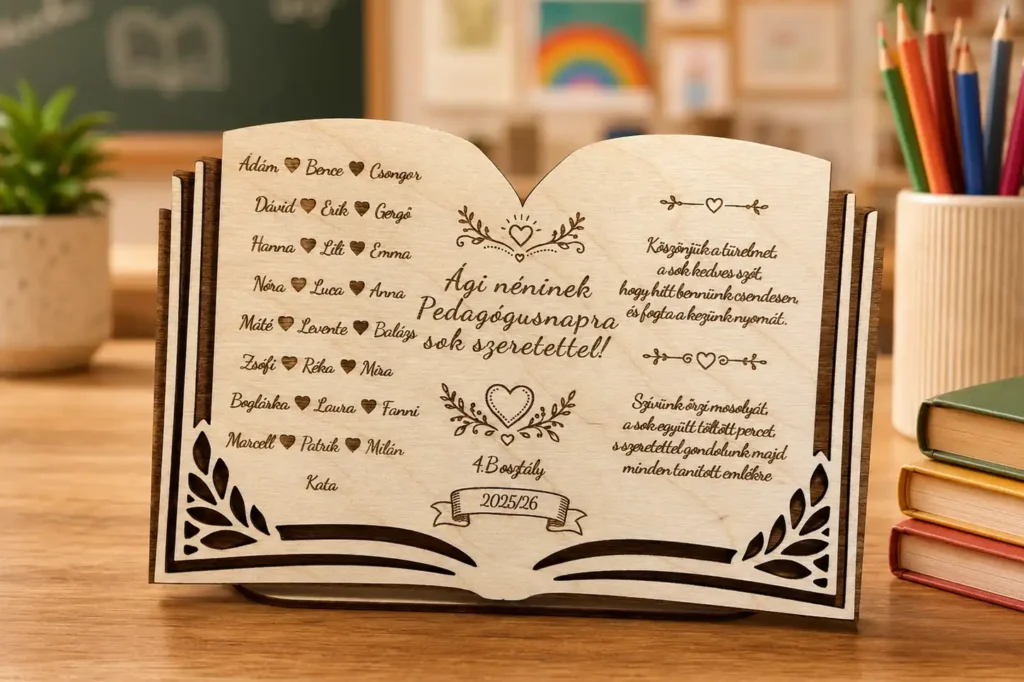 Ádám Bence Csongor
Dávid Erik Gergő
Hanna Lili Emma
Nóra Luca Anna
Máté Levente Balázs
Zsófi Réka Mira
Boglárka Laura Fanni
Marcell Patrik Milán
Kata
Ági néninek
Pedagógusnapra
sok szeretettel!
4.B osztály
2025/26
Köszönjük a türelmet,
a sok kedves szót,
hogy hitt bennünk csendesen,
és fogta a kezünk nyomát.
Szívünk őrzi mosolyát,
a sok együtt töltött percet,
s szeretettel gondolunk majd
minden tanított emlékre